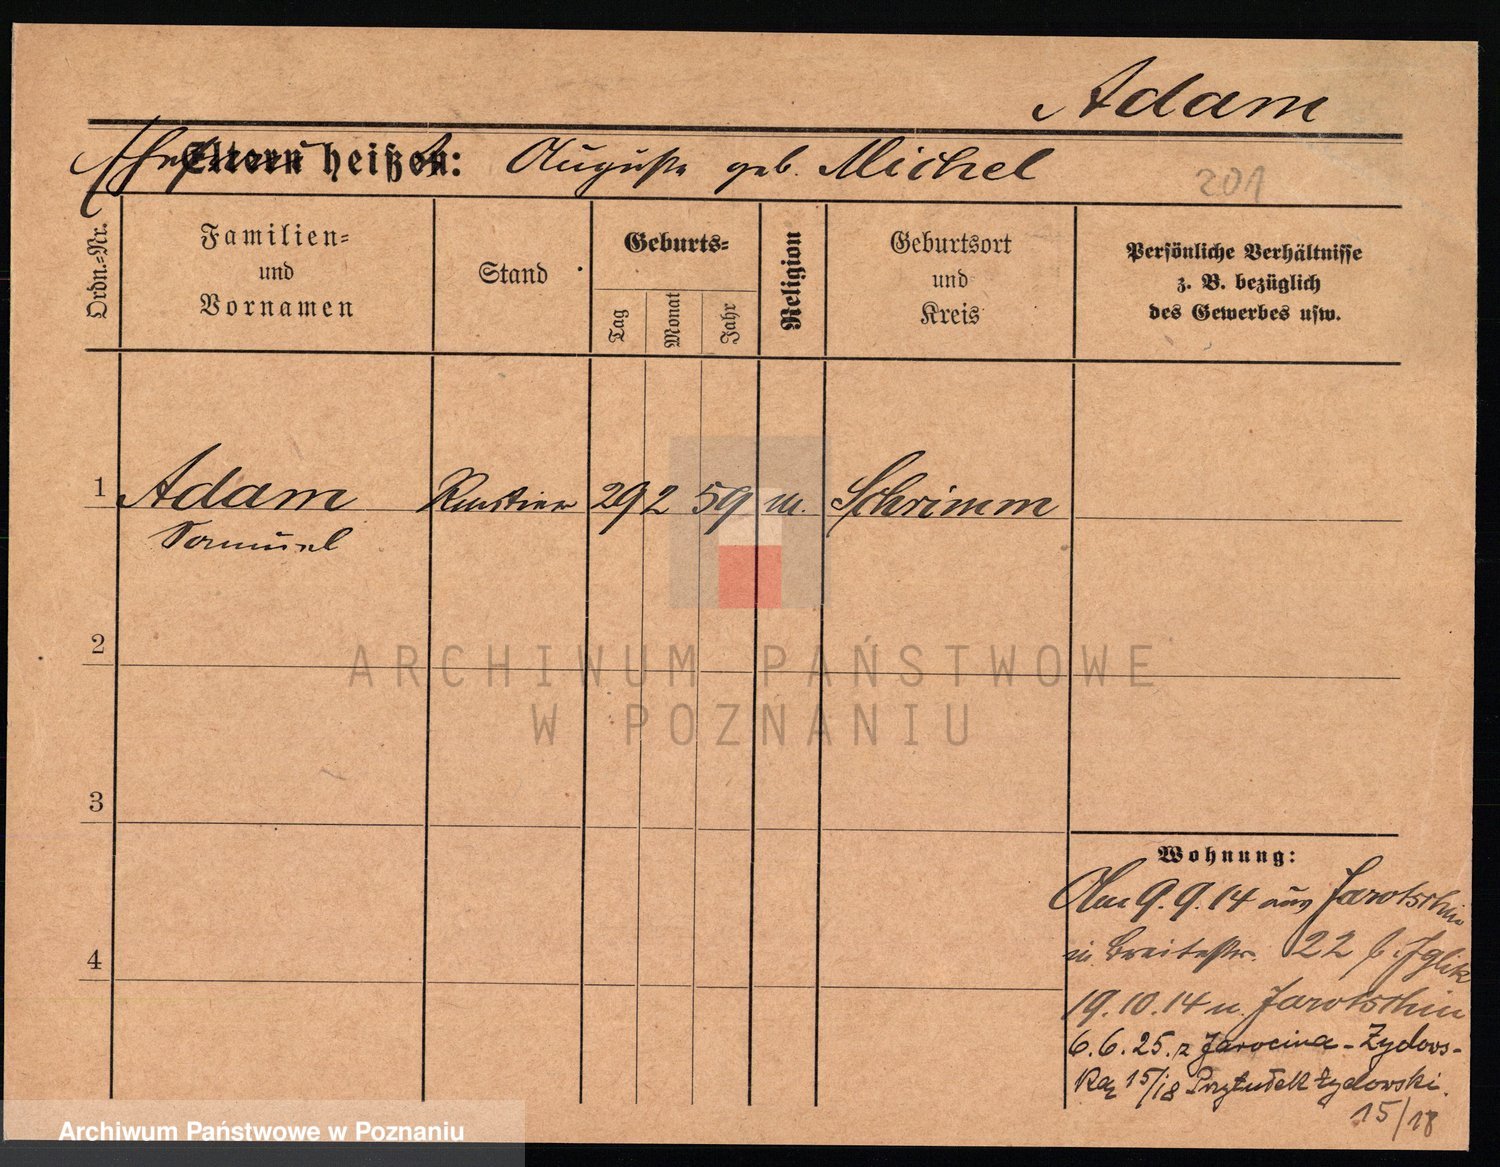 Adam
Eltern heißen: Auguste geb. Michel
201
Ordn.=Nr.
Familien=
und
Vornamen
Stand
Geburts=
Tag
Monat
Jahr
Religion
Geburtsort
und
Kreis
Persönliche Verhältnisse
z. B. bezüglich
des Gewerbes usw.
1 Adam Rentier 29 2 59 m. Schrimm
Samuel
2
3
4
ARCHIWUM PAŃSTWOWE
W POZNANIU
Wohnung:
9.9.14 aus Jarotschin
in Breitestr. 22 b. Iglik
19.10.14 n. Jarotschin
6.6.25. z Jarocina - Żydows-
ka 15/18 Przytułek żydowski.
15/18
Archiwum Państwowe w Poznaniu